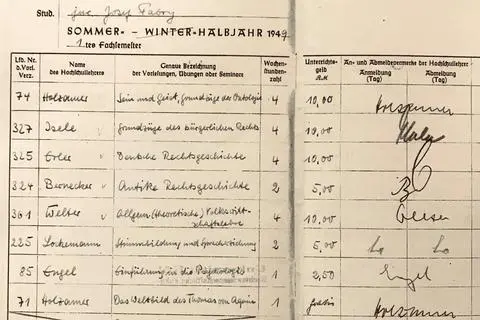 Stud. jur. Josef Fabry
SOMMER- – WINTER-HALBJAHR 1949
1 tes Fachsemester
Lfd. Nr. d. Vorl. Verz.
Name des Hochschullehrers
Genaue Bezeichnung der Vorlesungen, Übungen oder Seminare
Wochenstundenzahl
Unterrichtsgeld RM
An- und Abmeldevermerke der Hochschullehrer
Anmeldung (Tag)
Abmeldung (Tag)
74 Holzamer Sein und Geist, Grundzüge der Ontologie 4 10,00 Holzamer
327 Isele Grundzüge des bürgerlichen Rechts 4 10,00
325 Erler Deutsche Rechtsgeschichte 4 10,00
324 Bärmann Antike Rechtsgeschichte 2 5,00
361 Welter Allgem. (theoretische) Volkswirt-
schaftslehre 4 10,00
225 Lockemann Stimmbildung und Sprecherziehung 2 5,00 Lo Lo
85 Engel Einführung in die Psychologie 1 2,50 Engel
71 Holzamer Das Weltbild des Thomas von Aquin 1 gratis Holzamer